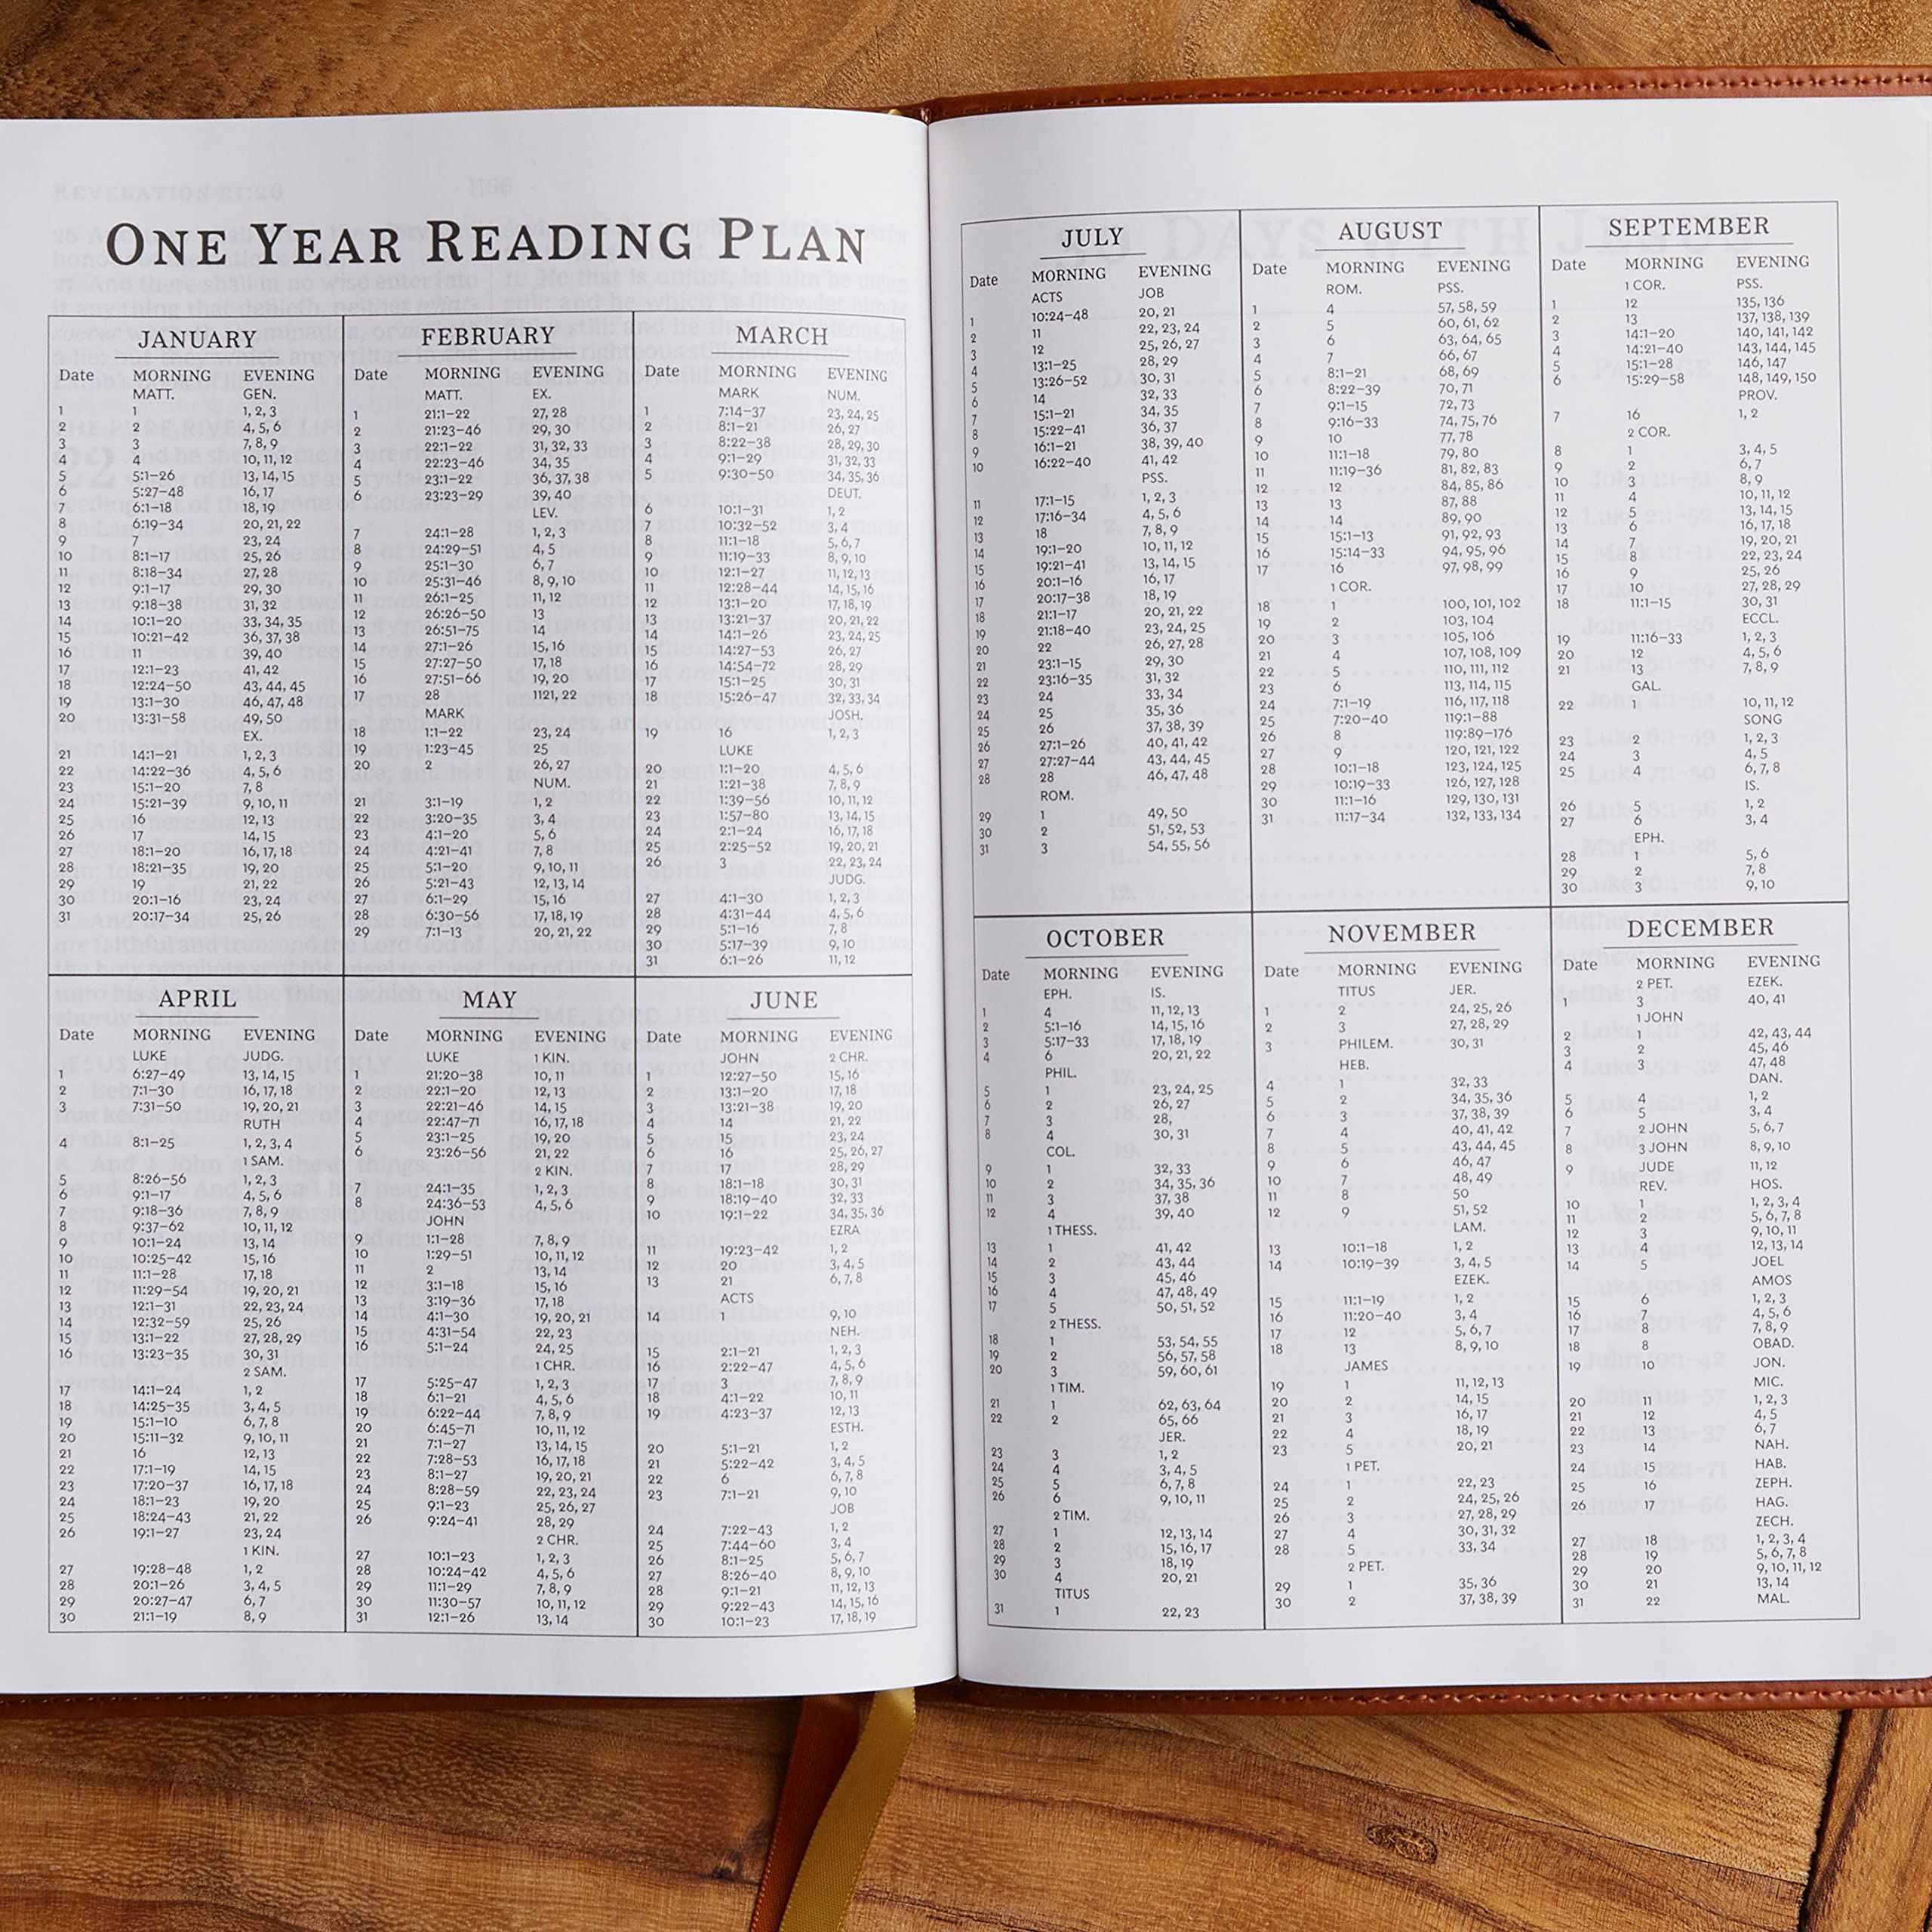 ONE YEAR READING PLAN
JANUARY
Date MORNING EVENING
MATT. GEN.
1 1 1, 2, 3
2 2 4, 5, 6
3 3 7, 8, 9
4 4 10, 11, 12
5 5:1–26 13, 14, 15
6 5:27–48 16, 17
7 6:1–18 18, 19
8 6:19–34 20, 21, 22
9 7 23, 24
10 8:1–17 25, 26
11 8:18–34 27, 28
12 9:1–17 29, 30
13 9:18–38 31, 32
14 10:1–20 33, 34, 35
15 10:21–42 36, 37, 38
16 11 39, 40
17 12:1–23 41, 42
18 12:24–50 43, 44, 45
19 13:1–30 46, 47, 48
20 13:31–58 49, 50
EX.
21 14:1–21 1, 2, 3
22 14:22–36 4, 5, 6
23 15:1–20 7, 8
24 15:21–39 9, 10, 11
25 16 12, 13
26 17 14, 15
27 18:1–20 16, 17, 18
28 18:21–35 19, 20
29 19 21, 22
30 20:1–16 23, 24
31 20:17–34 25, 26
FEBRUARY
Date MORNING EVENING
MATT. EX.
1 21:1–22 27, 28
2 21:23–46 29, 30
3 22:1–22 31, 32, 33
4 22:23–46 34, 35
5 23:1–22 36, 37, 38
6 23:23–29 39, 40
LEV.
7 24:1–28 1, 2, 3
8 24:29–51 4, 5
9 25:1–30 6, 7
10 25:31–46 8, 9, 10
11 26:1–25 11, 12
12 26:26–50 13
13 26:51–75 14
14 27:1–26 15, 16
15 27:27–50 17, 18
16 27:51–66 19, 20
17 28 1121, 22
MARK
18 1:1–22 23, 24
19 1:23–45 25
20 2 26, 27
NUM.
21 3:1–19 1, 2
22 3:20–35 3, 4
23 4:1–20 5, 6
24 4:21–41 7, 8
25 5:1–20 9, 10, 11
26 5:21–43 12, 13, 14
27 6:1–29 15, 16
28 6:30–56 17, 18, 19
29 7:1–13 20, 21, 22
MARCH
Date MORNING EVENING
MARK NUM.
1 7:14–37 23, 24, 25
2 8:1–21 26, 27
3 8:22–38 28, 29, 30
4 9:1–29 31, 32, 33
5 9:30–50 34, 35, 36
DEUT.
6 10:1–31 1, 2
7 10:32–52 3, 4
8 11:1–18 5, 6, 7
9 11:19–33 8, 9, 10
10 12:1–27 11, 12, 13
11 12:28–44 14, 15, 16
12 13:1–20 17, 18, 19
13 13:21–37 20, 21, 22
14 14:1–26 23, 24, 25
15 14:27–53 26, 27
16 14:54–72 28, 29
17 15:1–25 30, 31
18 15:26–47 32, 33, 34
JOSH.
19 16 1, 2, 3
LUKE
20 1:1–20 4, 5, 6
21 1:21–38 7, 8, 9
22 1:39–56 10, 11, 12
23 1:57–80 13, 14, 15
24 2:1–24 16, 17, 18
25 2:25–52 19, 20, 21
26 3 22, 23, 24
JUDG.
27 4:1–30 1, 2, 3
28 4:31–44 4, 5, 6
29 5:1–16 7, 8
30 5:17–39 9, 10
31 6:1–26 11, 12
APRIL
Date MORNING EVENING
LUKE JUDG.
1 6:27–49 13, 14, 15
2 7:1–30 16, 17, 18
3 7:31–50 19, 20, 21
RUTH
4 8:1–25 1, 2, 3, 4
1 SAM.
5 8:26–56 1, 2, 3
6 9:1–17 4, 5, 6
7 9:18–36 7, 8, 9
8 9:37–62 10, 11, 12
9 10:1–24 13, 14
10 10:25–42 15, 16
11 11:1–28 17, 18
12 11:29–54 19, 20, 21
13 12:1–31 22, 23, 24
14 12:32–59 25, 26
15 13:1–22 27, 28, 29
16 13:23–35 30, 31
2 SAM.
17 14:1–24 1, 2
18 14:25–35 3, 4, 5
19 15:1–10 6, 7, 8
20 15:11–32 9, 10, 11
21 16 12, 13
22 17:1–19 14, 15
23 17:20–37 16, 17, 18
24 18:1–23 19, 20
25 18:24–43 21, 22
26 19:1–27 23, 24
1 KIN.
27 19:28–48 1, 2
28 20:1–26 3, 4, 5
29 20:27–47 6, 7
30 21:1–19 8, 9
MAY
Date MORNING EVENING
LUKE 1 KIN.
1 21:20–38 10, 11
2 22:1–20 12, 13
3 22:21–46 14, 15
4 22:47–71 16, 17, 18
5 23:1–25 19, 20
6 23:26–56 21, 22
2 KIN.
7 24:1–35 1, 2, 3
8 24:36–53 4, 5, 6
JOHN
9 1:1–28 7, 8, 9
10 1:29–51 10, 11, 12
11 2 13, 14
12 3:1–18 15, 16
13 3:19–36 17, 18
14 4:1–30 19, 20, 21
15 4:31–54 22, 23
16 5:1–24 24, 25
1 CHR.
17 5:25–47 1, 2, 3
18 6:1–21 4, 5, 6
19 6:22–44 7, 8, 9
20 6:45–71 10, 11, 12
21 7:1–27 13, 14, 15
22 7:28–53 16, 17, 18
23 8:1–27 19, 20, 21
24 8:28–59 22, 23, 24
25 9:1–23 25, 26, 27
26 9:24–41 28, 29
2 CHR.
27 10:1–23 1, 2, 3
28 10:24–42 4, 5, 6
29 11:1–29 7, 8, 9
30 11:30–57 10, 11, 12
31 12:1–26 13, 14
JUNE
Date MORNING EVENING
JOHN 2 CHR.
1 12:27–50 15, 16
2 13:1–20 17, 18
3 13:21–38 19, 20
4 14 21, 22
5 15 23, 24
6 16 25, 26, 27
7 17 28, 29
8 18:1–18 30, 31
9 18:19–40 32, 33
10 19:1–22 34, 35, 36
EZRA
11 19:23–42 1, 2
12 20 3, 4, 5
13 21 6, 7, 8
ACTS
14 1 9, 10
NEH.
15 2:1–21 1, 2, 3
16 2:22–47 4, 5, 6
17 3 7, 8, 9
18 4:1–22 10, 11
19 4:23–37 12, 13
ESTH.
20 5:1–21 1, 2
21 5:22–42 3, 4, 5
22 6 6, 7, 8
23 7:1–21 9, 10
JOB
24 7:22–43 1, 2
25 7:44–60 3, 4
26 8:1–25 5, 6, 7
27 8:26–40 8, 9, 10
28 9:1–21 11, 12, 13
29 9:22–43 14, 15, 16
30 10:1–23 17, 18, 19
JULY
Date MORNING EVENING
ACTS JOB
1 10:24–48 20, 21
2 11 22, 23, 24
3 12 25, 26, 27
4 13:1–25 28, 29
5 13:26–52 30, 31
6 14 32, 33
7 15:1–21 34, 35
8 15:22–41 36, 37
9 16:1–21 38, 39, 40
10 16:22–40 41, 42
PSS.
11 17:1–15 1, 2, 3
12 17:16–34 4, 5, 6
13 18 7, 8, 9
14 19:1–20 10, 11, 12
15 19:21–41 13, 14, 15
16 20:1–16 16, 17
17 20:17–38 18, 19
18 21:1–17 20, 21, 22
19 21:18–40 23, 24, 25
20 22 26, 27, 28
21 23:1–15 29, 30
22 23:16–35 31, 32
23 24 33, 34
24 25 35, 36
25 26 37, 38, 39
26 27:1–26 40, 41, 42
27 27:27–44 43, 44, 45
28 28 46, 47, 48
ROM.
29 1 49, 50
30 2 51, 52, 53
31 3 54, 55, 56
AUGUST
Date MORNING EVENING
ROM. PSS.
1 4 57, 58, 59
2 5 60, 61, 62
3 6 63, 64, 65
4 7 66, 67
5 8:1–21 68, 69
6 8:22–39 70, 71
7 9:1–15 72, 73
8 9:16–33 74, 75, 76
9 10 77, 78
10 11:1–18 79, 80
11 11:19–36 81, 82, 83
12 12 84, 85, 86
13 13 87, 88
14 14 89, 90
15 15:1–13 91, 92, 93
16 15:14–33 94, 95, 96
17 16 97, 98, 99
1 COR.
18 1 100, 101, 102
19 2 103, 104
20 3 105, 106
21 4 107, 108, 109
22 5 110, 111, 112
23 6 113, 114, 115
24 7:1–19 116, 117, 118
25 7:20–40 119:1–88
26 8 119:89–176
27 9 120, 121, 122
28 10:1–18 123, 124, 125
29 10:19–33 126, 127, 128
30 11:1–16 129, 130, 131
31 11:17–34 132, 133, 134
SEPTEMBER
Date MORNING EVENING
1 COR. PSS.
1 12 135, 136
2 13 137, 138, 139
3 14:1–20 140, 141, 142
4 14:21–40 143, 144, 145
5 15:1–28 146, 147
6 15:29–58 148, 149, 150
PROV.
7 16 1, 2
2 COR.
8 1 3, 4, 5
9 2 6, 7
10 3 8, 9
11 4 10, 11, 12
12 5 13, 14, 15
13 6 16, 17, 18
14 7 19, 20, 21
15 8 22, 23, 24
16 9 25, 26
17 10 27, 28, 29
18 11:1–15 30, 31
ECCL.
19 11:16–33 1, 2, 3
20 12 4, 5, 6
21 13 7, 8, 9
GAL.
22 1 10, 11, 12
SONG
23 2 1, 2, 3
24 3 4, 5
25 4 6, 7, 8
IS.
26 5 1, 2
27 6 3, 4
EPH.
28 1 5, 6
29 2 7, 8
30 3 9, 10
OCTOBER
Date MORNING EVENING
EPH. IS.
1 4 11, 12, 13
2 5:1–16 14, 15, 16
3 5:17–33 17, 18, 19
4 6 20, 21, 22
PHIL.
5 1 23, 24, 25
6 2 26, 27
7 3 28,
8 4 30, 31
COL.
9 1 32, 33
10 2 34, 35, 36
11 3 37, 38
12 4 39, 40
1 THESS.
13 1 41, 42
14 2 43, 44
15 3 45, 46
16 4 47, 48, 49
17 5 50, 51, 52
2 THESS.
18 1 53, 54, 55
19 2 56, 57, 58
20 3 59, 60, 61
1 TIM.
21 1 62, 63, 64
22 2 65, 66
JER.
23 3 1, 2
24 4 3, 4, 5
25 5 6, 7, 8
26 6 9, 10, 11
2 TIM.
27 1 12, 13, 14
28 2 15, 16, 17
29 3 18, 19
30 4 20, 21
TITUS
31 1 22, 23
NOVEMBER
Date MORNING EVENING
TITUS JER.
1 2 24, 25, 26
2 3 27, 28, 29
3 PHILEM. 30, 31
HEB.
4 1 32, 33
5 2 34, 35, 36
6 3 37, 38, 39
7 4 40, 41, 42
8 5 43, 44, 45
9 6 46, 47
10 7 48, 49
11 8 50
12 9 51, 52
LAM.
13 10:1–18 1, 2
14 10:19–39 3, 4, 5
EZEK.
15 11:1–19 1, 2
16 11:20–40 3, 4
17 12 5, 6, 7
18 13 8, 9, 10
JAMES
19 1 11, 12, 13
20 2 14, 15
21 3 16, 17
22 4 18, 19
23 5 20, 21
1 PET.
24 1 22, 23
25 2 24, 25, 26
26 3 27, 28, 29
27 4 30, 31, 32
28 5 33, 34
2 PET.
29 1 35, 36
30 2 37, 38, 39
DECEMBER
Date MORNING EVENING
2 PET. EZEK.
1 3 40, 41
1 JOHN
2 1 42, 43, 44
3 2 45, 46
4 3 47, 48
DAN.
5 4 1, 2
6 5 3, 4
7 2 JOHN 5, 6, 7
8 3 JOHN 8, 9, 10
9 JUDE 11, 12
REV. HOS.
10 1 1, 2, 3, 4
11 2 5, 6, 7, 8
12 3 9, 10, 11
13 4 12, 13, 14
14 5 JOEL
AMOS
15 6 1, 2, 3
16 7 4, 5, 6
17 8 7, 8, 9
18 8 OBAD.
19 10 JON.
MIC.
20 11 1, 2, 3
21 12 4, 5
22 13 6, 7
23 14 NAH.
24 15 HAB.
25 16 ZEPH.
26 17 HAG.
ZECH.
27 18 1, 2, 3, 4
28 19 5, 6, 7, 8
29 20 9, 10, 11, 12
30 21 13, 14
31 22 MAL.